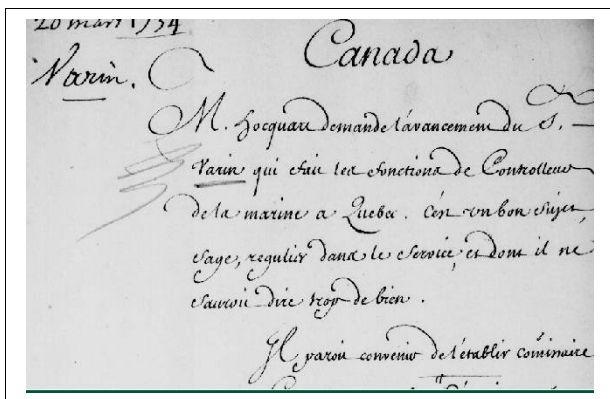 20 mars 1734
Varin.
Canada
M. hocquart demande l'avancement du S.
Varin qui fait les fonctions de Controlleur
de la marine a Quebec. C'est un bon sujet,
sage, regulier dans le service, et dont il ne
sauroit dire trop de bien.
Il paroit convenir de l'établir com̃ire